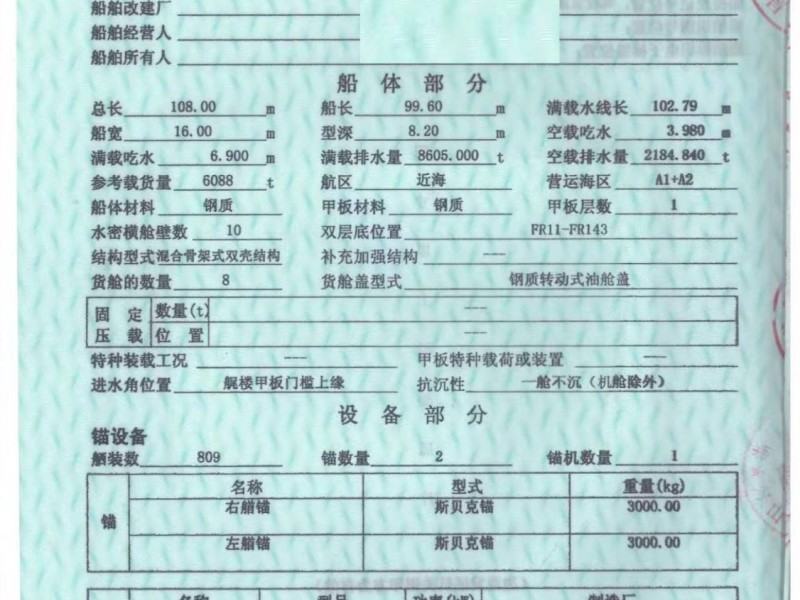 船舶改建厂
船舶经营人
船舶所有人
船 体 部 分
总长 108.00 m 船长 99.60 m 满载水线长 102.79 m
船宽 16.00 m 型深 8.20 m 空载吃水 3.980 m
满载吃水 6.900 m 满载排水量 8605.000 t 空载排水量 2184.840 t
参考载货量 6088 t 航区 近海 营运海区 A1+A2
船体材料 钢质 甲板材料 钢质 甲板层数 1
水密横舱壁数 10 双层底位置 FR11-FR143
结构型式 混合骨架式双壳结构 补充加强结构 ---
货舱的数量 8 货舱盖型式 钢质转动式油舱盖
固 定 数量(t) ---
压 载 位 置 ---
特种装载工况 --- 甲板特种载荷或装置 ---
进水角位置 艉楼甲板门槛上缘 抗沉性 一舱不沉（机舱除外）
设 备 部 分
锚设备
舾装数 809 锚数量 2 锚机数量 1
名称 型式 重量(kg)
锚
右艏锚 斯贝克锚 3000.00
左艏锚 斯贝克锚 3000.00
名称 型号 功率(kW) 制造厂